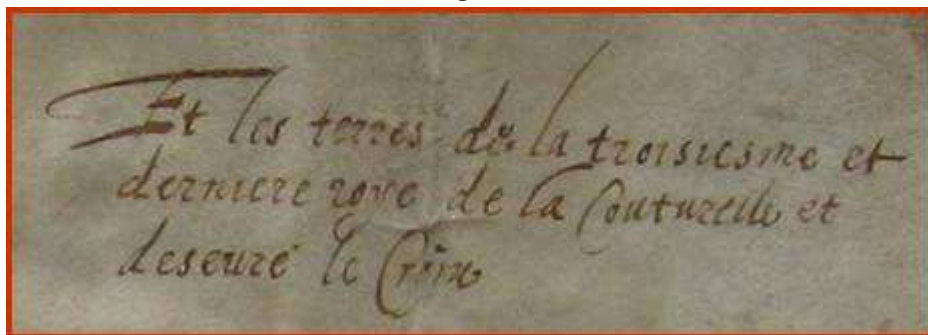 Et les terres de la troisiesme et
derniere roye de la Couturelle et
deseure le